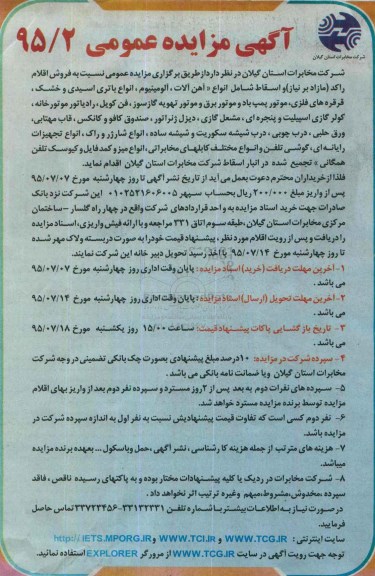 شرکت مخابرات استان گیلان
آگهی مزایده عمومی ۹۵/۲
شرکت مخابرات استان گیلان در نظر دارد از طریق برگزاری مزایده عمومی نسبت به فروش اقلام
راکد (مازاد بر نیاز) و اسقاط شامل انواع « آهن آلات ، آلومینیوم ، انواع باتری اسیدی و خشک ،
قرقره های فلزی ، موتور پمپ باد و موتور برق و موتور تهویه گازسوز ، فن کویل ، رادیاتور موتورخانه ،
کولر گازی اسپیلیت و پنجره ای ، مشعل گازی ، دیزل ژنراتور ، صندوق کافو و کانکس ، قاب مهتابی ،
ورق حلبی ، درب چوبی ، درب شیشه سکوریت و شیشه ساده ، انواع شارژر و راک ، انواع تجهیزات
رایانه ای ، گوشی تلفن و انواع مختلف کابلهای مخابراتی ، انواع میز و کمد فایل و کیوسک تلفن
همگانی » تجمیع شده در انبار اسقاط شرکت مخابرات استان گیلان اقدام نماید.
فلذا از خریداران محترم دعوت بعمل می آید از تاریخ نشر آگهی تا روز چهارشنبه مورخ ۹۵/۰۷/۰۷
پس از واریز مبلغ ۲۰۰/۰۰۰ ریال بحساب سپهر ۰۱۰۲۵۲۱۶۰۶۰۰۵ این شرکت نزد بانک
صادرات جهت خرید اسناد مزایده به واحد قراردادهای شرکت واقع در چهار راه گلسار - ساختمان
مرکزی مخابرات استان گیلان ، طبقه سوم اتاق ۳۳۱ مراجعه و با ارائه فیش واریزی ، اسناد مزایده
را دریافت و پس از رویت اقلام مورد نظر ، پیشنهاد قیمت خود را به صورت دربسته و لاک مهر شده
تا روز چهارشنبه مورخ ۹۵/۰۷/۱۴ با اخذ رسید تحویل دبیرخانه این شرکت نمایند.
۱- آخرین مهلت دریافت (خرید) اسناد مزایده : پایان وقت اداری روز چهارشنبه مورخ ۹۵/۰۷/۰۷
می باشد .
۲- آخرین مهلت تحویل (ارسال) اسناد مزایده : پایان وقت اداری روز چهارشنبه مورخ ۹۵/۰۷/۱۴
می باشد .
۳- تاریخ بازگشایی پاکات پیشنهاد قیمت : ساعت ۱۵/۰۰ روز یکشنبه مورخ ۹۵/۰۷/۱۸
می باشد.
۴- سپرده شرکت در مزایده: ۱۰درصد مبلغ پیشنهادی بصورت چک بانکی تضمینی در وجه شرکت
مخابرات استان گیلان و یا ضمانت نامه بانکی می باشد .
۵- سپرده های نفرات دوم به بعد پس از ۲ روز مسترد و سپرده نفر دوم بعد از واریز بهای اقلام
مزایده توسط برنده مزایده مسترد خواهد شد.
۶- نفر دوم کسی است که تفاوت قیمت پیشنهادیش نسبت به نفر اول به اندازه سپرده شرکت در
مزایده باشد.
۷- هزینه های مترتب از جمله هزینه کارشناسی ، نشر آگهی ، حمل و باسکول ... بعهده برنده مزایده
میباشد.
۸- شرکت مخابرات در رد یک یا کلیه پیشنهادات مختار بوده و به پاکتهای رسیده ناقص ، فاقد
سپرده ، مخدوش ، مشروط ، مبهم وغیره ترتیب اثر نخواهد داد .
در صورت نیاز به اطلاعات بیشتر با شماره تلفن ۳۳۱۳۲۳۳۱-۳۳۷۲۳۴۵۶ تماس حاصل
فرمایید.
سایت اینترنتی : WWW.TCG.IR و WWW.TCI.IR و http://IETS.MPORG.IR
توجه جهت رویت آگهی در سایت WWW.TCG.IR از مرورگر EXPLORER استفاده نمائید.